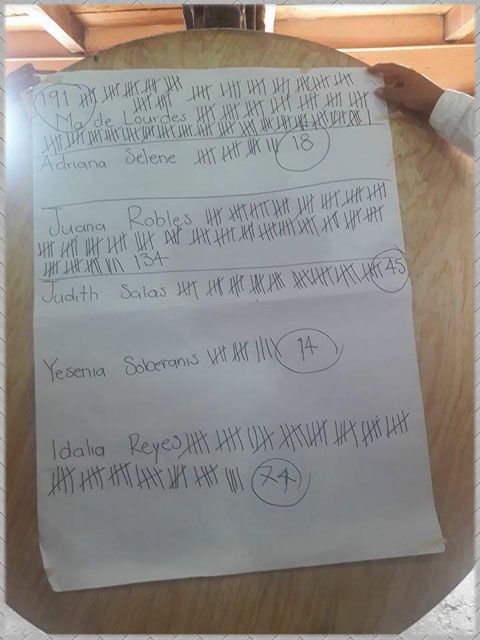 191
Ma de Lourdes
Adriana Selene 18
Juana Robles
134
Judith Salas 45
Yesenia Soberanis 14
Idalia Reyes
74